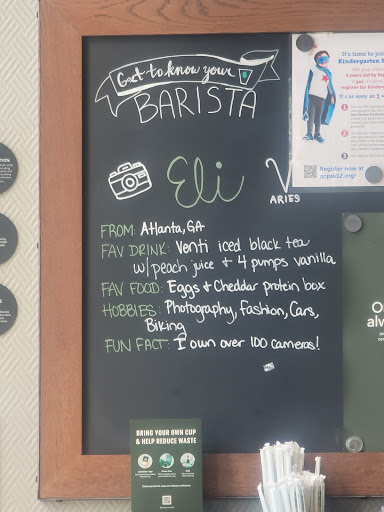 Get to know your
BARISTA
Eli
V
ARIES
FROM: Atlanta, GA
FAV DRINK: Venti iced black tea
w/ peach juice + 4 pumps vanilla
FAV FOOD: Eggs + Cheddar protein box
HOBBIES: Photography, Fashion, Cars,
Biking
FUN FACT: I own over 100 cameras!
It's time to
Kindergarten
5 years old by
register for
It's as easy as
Register now!
ocpsk12.org
BRING YOUR OWN CUP
& HELP REDUCE WASTE